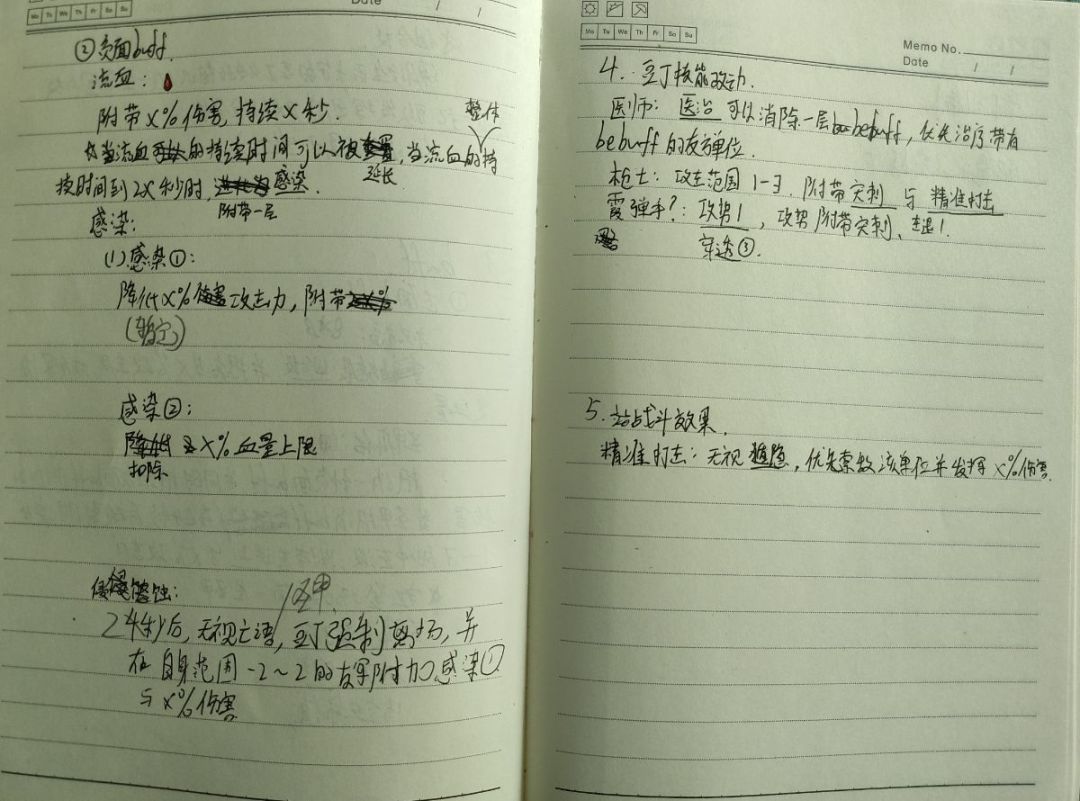 Mo Tu We Th Fr Sa Su
Date / /
②负面buff.
流血:
附带X%伤害,持续X秒.
整体
当流血的持续时间可以被延长,当流血的持
续时间到2X秒时,附带一层感染.
感染:
(1)感染①:
降低X%攻击力,附带
(暂定)
感染②:
扣除X%血量上限
侵蚀:
24秒后,无视亡语,豆丁强制离场,并
在自身范围-2~2的友军附加感染①
与X%伤害
Mo Tu We Th Fr Sa Su
Memo No.
Date / /
4. 豆丁技能改动.
医师:医治 可以消除一层bebuff,优先治疗带有
bebuff的友军单位.
枪士:攻击范围1-3.附带突刺 与 精准打击
霰弹手?:攻势1,攻势附带突刺、击退1.
穿透③.
5. 战斗效果.
精准打击:无视,优先索敌该单位并发挥X%伤害.